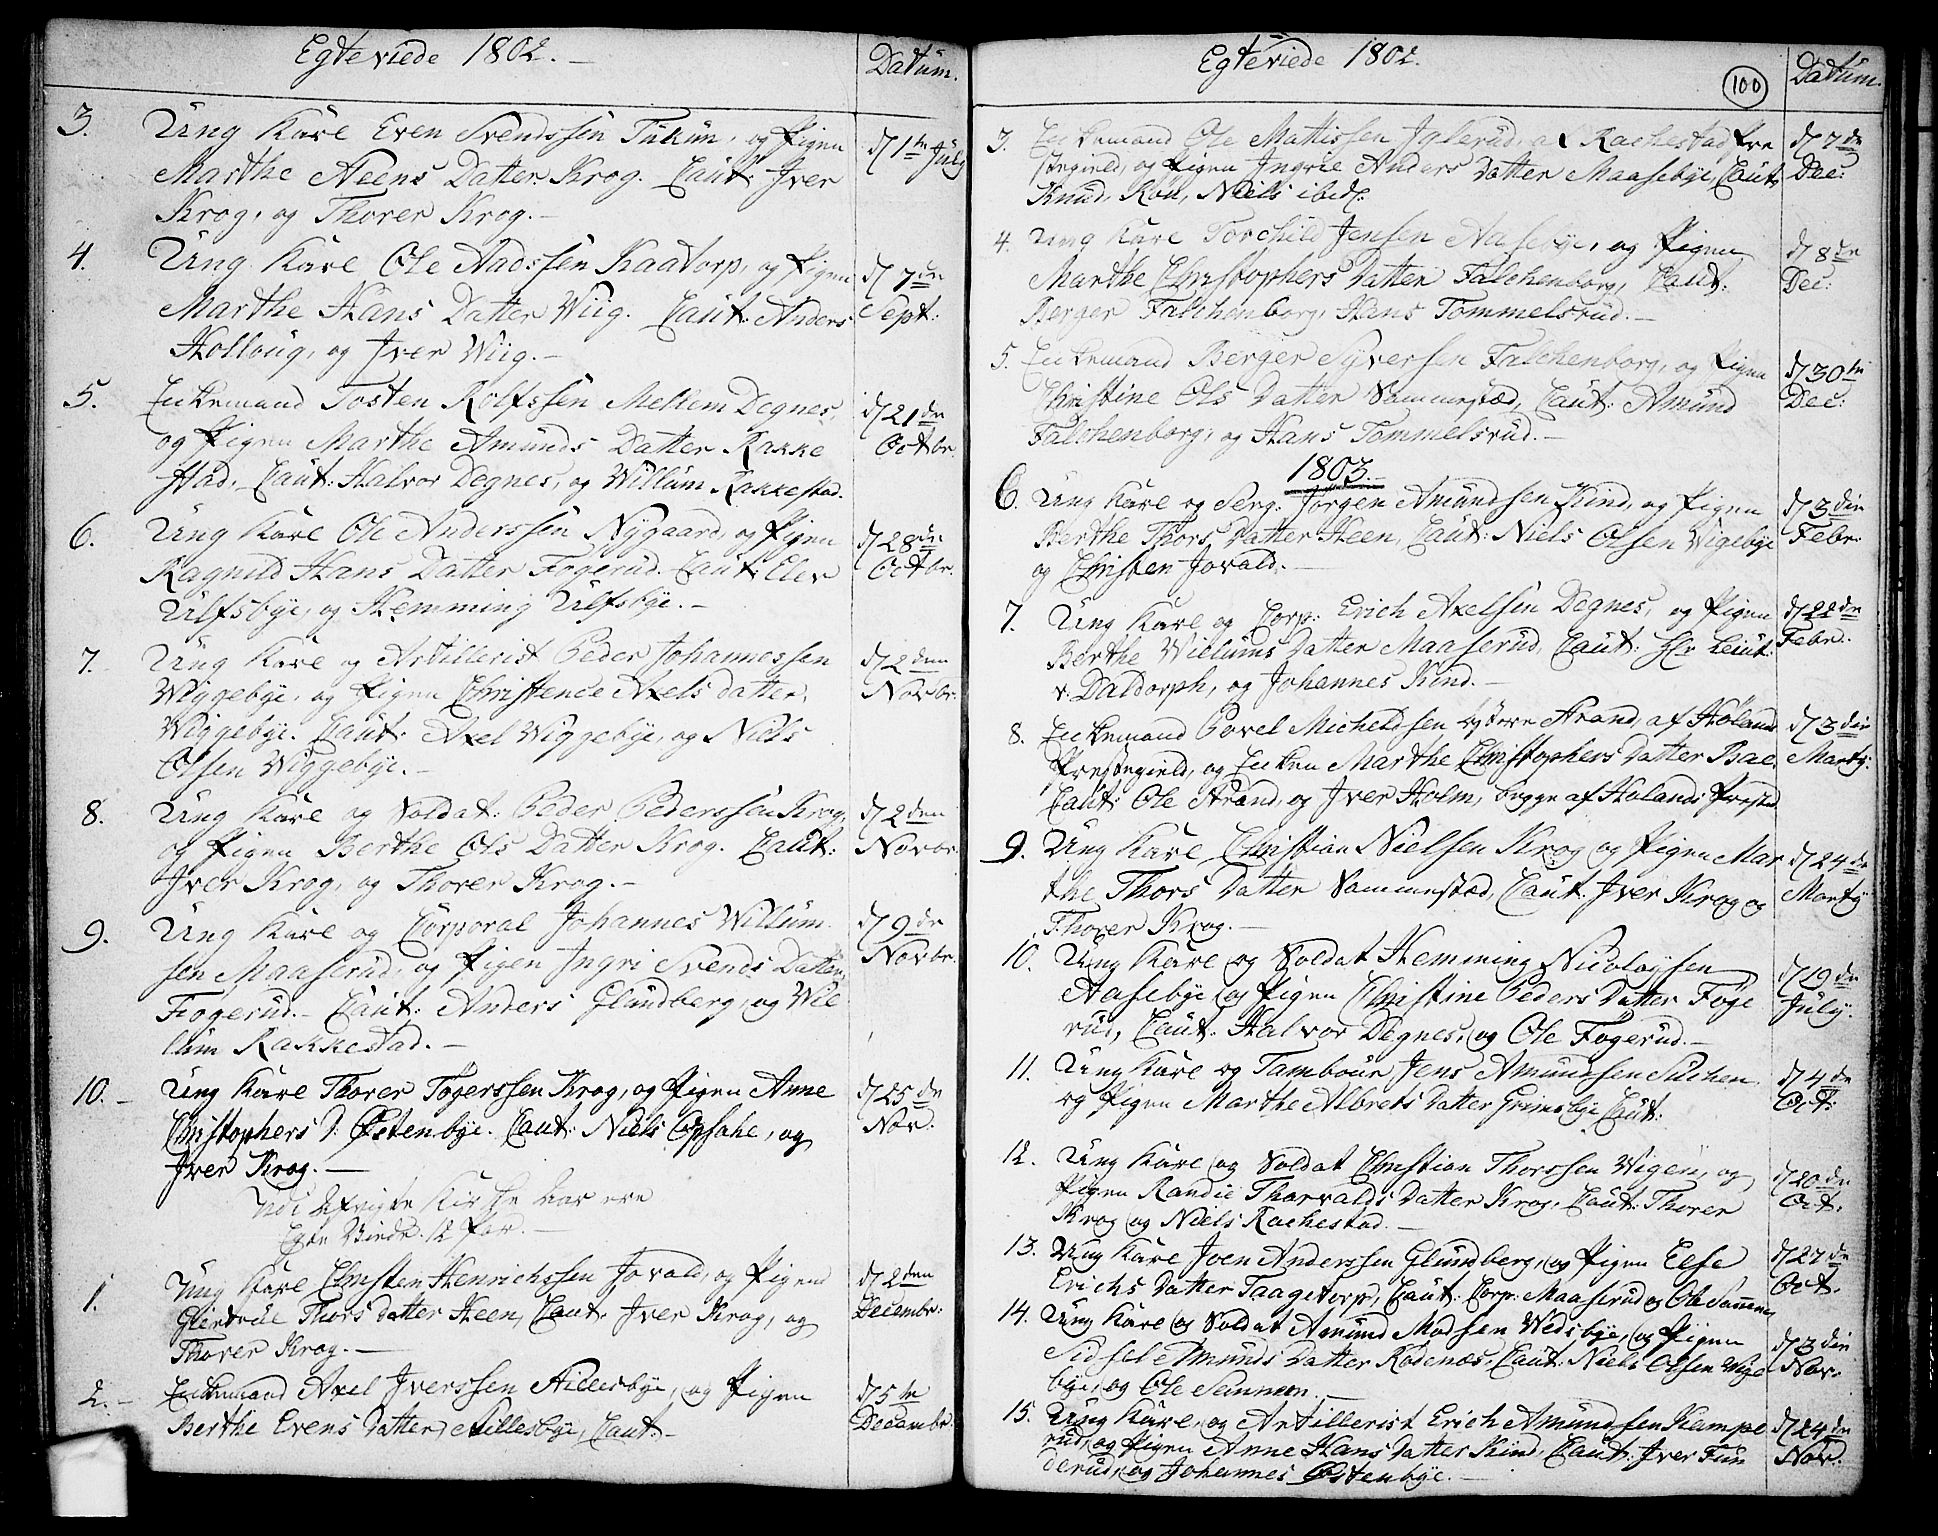 Egteviede 1802.
Datum.
3. Ung Karl Even Svendssen Tukun, og Pigen
Marthe Steens Datter Krog. Caut: Iver
Krog, og Thorer Krog.
d/1te July
4. Ung Karl Ole Aadssen Kaatorp, og Pigen
Marthe Hans Datter Wiig. Caut: Anders
Holloug, og Iver Wiig.
d/7de
Sept:
5. Enkemand Tosten Rolfssen Mellem Degnes,
og Pigen Marthe Amunds Datter Rakke
stad. Caut: Halvor Degnes, og Willum Rakkestad.
d/21de
Octbr.
6. Ung Karl Ole Anderssen Nygaard, og Pigen
Ragnild Hans Datter Fogerud. Caut: Elev
Ulfsbye, og Hemming Ulfsbye.
d/28de
Octbr.
7. Ung Karl og Artillerist Peder Johannessen
Wiggebye, og Pigen Christence Axels datter
Wiggebye. Caut: Axel Wiggebye, og Niels
Olsen Wiggebye.
d/2den
Novbr.
8. Ung Karl og Soldat: Peder Pederssen Krog,
og Pigen Berthe Ols Datter Krog. Caut:
Iver Krog, og Thorer Krog.
d/2den
Novbr.
9. Ung Karl og Corporal Johannes Willum
sen Maaserud, og Pigen Ingri Svends Datter
Fogerud. Caut: Anders Glundberg, og Wil
lum Rakkestad.
d/9de
Novbr.
10. Ung Karl Thorer Togerssen Krog, og Pigen Anne
Christophers D: Østenbye. Caut: Niels Opsahl, og
Iver Krog.
d/25de
Nov.
Udi Kirke har
12 Par.
1. Ung Karl Christen Henrichssen Jovald, og Pigen
Giertrue Thors Datter Heen, Caut: Iver Krog, og
Thorer Krog.
d/2den
Decembr:
2. Enkemand Axel Iverssen Sillesbye, og Pigen
Berthe Evens Datter Sillesbye, Caut:
d/5te
Decembr.
Egteviede 1802.
100
Datum.
3. Enkemand Ole Mattissen Iglerud, af Rachestad Pre
stegield, og Pigen Ingrie Anders Datter Maasebye, Caut:
Knud Kou, Niels ibid:
d/7de
Dec:
4. Ung Karl Torchild Jensen Aasebye, og Pigen
Marthe Christophers Datter Falchenborg, Caut:
Berger Falchenborg, Hans Tommelsrud.
d/8de
Dec:
5. Enkemand Berger Syversen Falchenborg, og Pigen
Christine Ols Datter Sammestad, Caut: Amund
Falchenborg, og Hans Tommelsrud.
d/30te
Dec:
1803.
6. Ung Karl og Serg: Jørgen Amundsen Kind, og Pigen
Berthe Thors Datter Heen, Caut: Niels Olsen Wigebye
og Christen Jovald.
d/3die
Febr:
7. Ung Karl og Corp: Erich Axelsen Degnes, og Pigen
Berthe Willums Datter Maaserud, Caut: Hr Leiut:
v. Daldorph, og Johannes Kind.
d/22de
Febr.
8. Enkemand Povel Michelsen Strand, af Høland
Prestegield, og Enken Marthe Christophers Datter Bae,
Caut: Ole Strand, og Iver Holm, begge af Høland Presteg
d/3die
Marty:
9. Ung Karl Christian Nielsen Krog og Pigen Mar
the Thors Datter Sammestad, Caut: Iver Krog og
Thorer Krog.
d/24de
Marty
10. Ung Karl og Soldat Hemming Nicolaysen
Aasebye og Pigen Christine Peders Datter Foge
rud, Caut: Halvor Degnes, og Ole Fogerud.
d/19de
July.
11. Ung Karl og Tambour Jens Amundsen Suchen
og Pigen Marthe Albrets Datter Grimsbye Caut:
d/4de
Oct:
12. Ung Karl og Soldat Christian Thorssen Wigen, og
Pigen Randie Thorvalds Datter Krog, Caut: Thorer
Krog og Niels Rachestad.
d/20de
Oct.
13. Ung Karl Joen Anderssen Glundberg, og Pigen Else
Erichs Datter Taagetorp, Caut: Corp: Maaserud og Ole Sammen
d/27de
Oct.
14. Ung Karl og Soldat Amund Madsen Wedsbye, og Pigen
Sidsel Amunds Datter Rødenæs, Caut: Niels Olsen Wige
bye, og Ole Sammen.
d/3die
Nov.
15. Ung Karl og Artillerist Erich Amundsen Kampe
rud, og Pigen Anne Hans Datter Kind, Caut: Iver Fun
derud, og Johannes Østenbye.
d/24de
Nov.